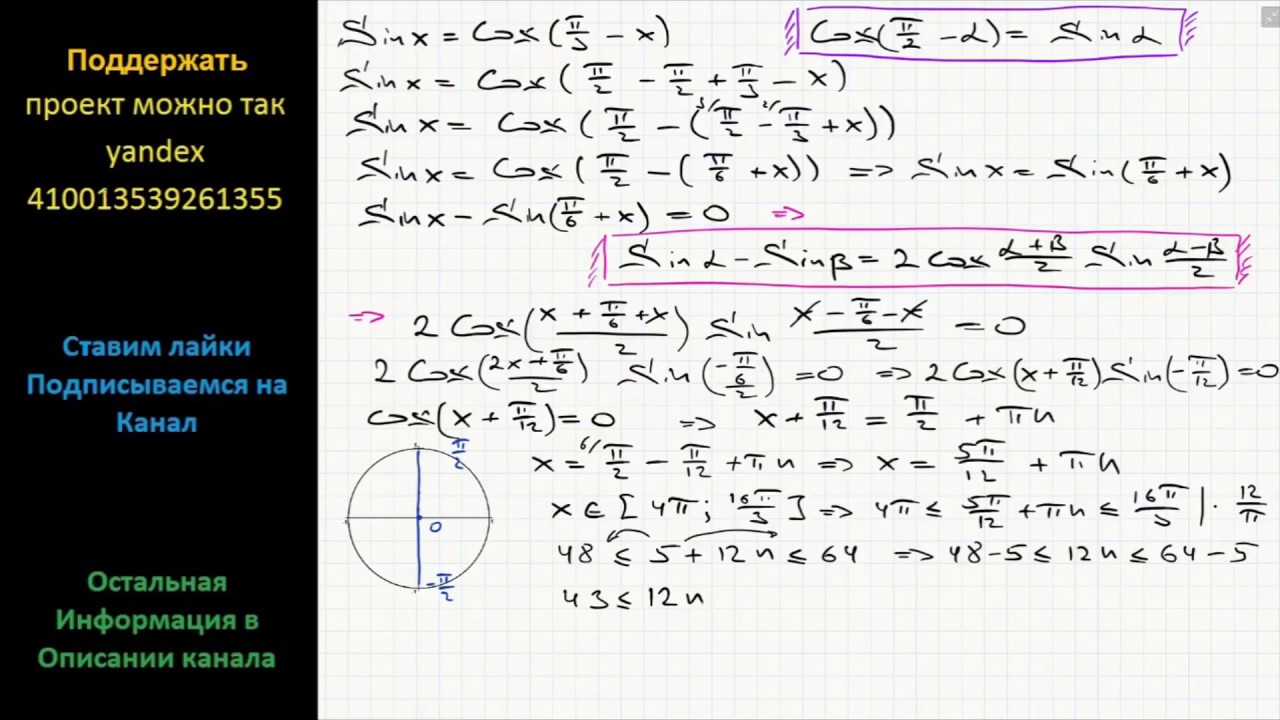 Поддержать
проект можно так
yandex
410013539261355
Ставим лайки
Подписываемся на
Канал
Остальная
Информация в
Описании канала
Sin x = Cos(π/3 − x)
Cos(π/2 − α) = Sin α
Sin x = Cos(π/2 − π/2 + π/3 − x)
Sin x = Cos(π/2 − (3/ π/2 − 2/ π/3 + x))
Sin x = Cos(π/2 − (π/6 + x)) => Sin x = Sin(π/6 + x)
Sin x − Sin(π/6 + x) = 0 =>
Sin α − Sin β = 2 Cos (α+β)/2 Sin (α−β)/2
=> 2 Cos((x + π/6 + x)/2) Sin (x − π/6 − x)/2 = 0
2 Cos((2x + π/6)/2) Sin(−π/6/2) = 0 => 2 Cos(x + π/12) Sin(−π/12) = 0
Cos(x + π/12) = 0 => x + π/12 = π/2 + πn
x = 6/ π/2 − π/12 + πn => x = 5π/12 + πn
x ∈ [4π; 16π/3] => 4π ≤ 5π/12 + πn ≤ 16π/3 | · 12/π
48 ≤ 5 + 12n ≤ 64 => 48 − 5 ≤ 12n ≤ 64 − 5
43 ≤ 12n
π/2
0
−π/2